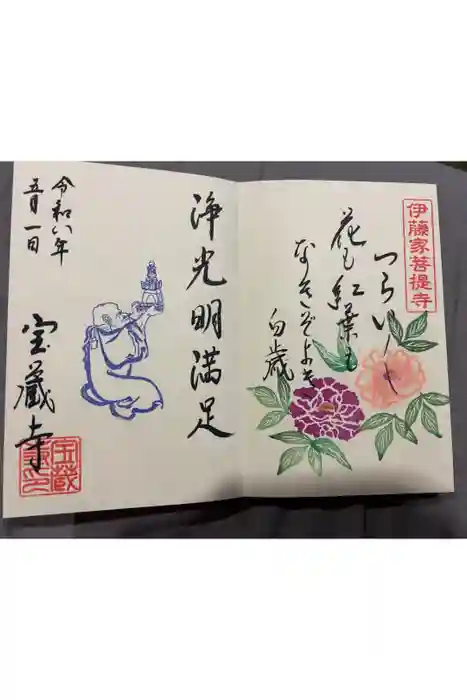 伊藤家菩提寺
花も紅葉も
なきぞよき
白歳
浄光明満足
令和八年
五月一日
宝蔵寺